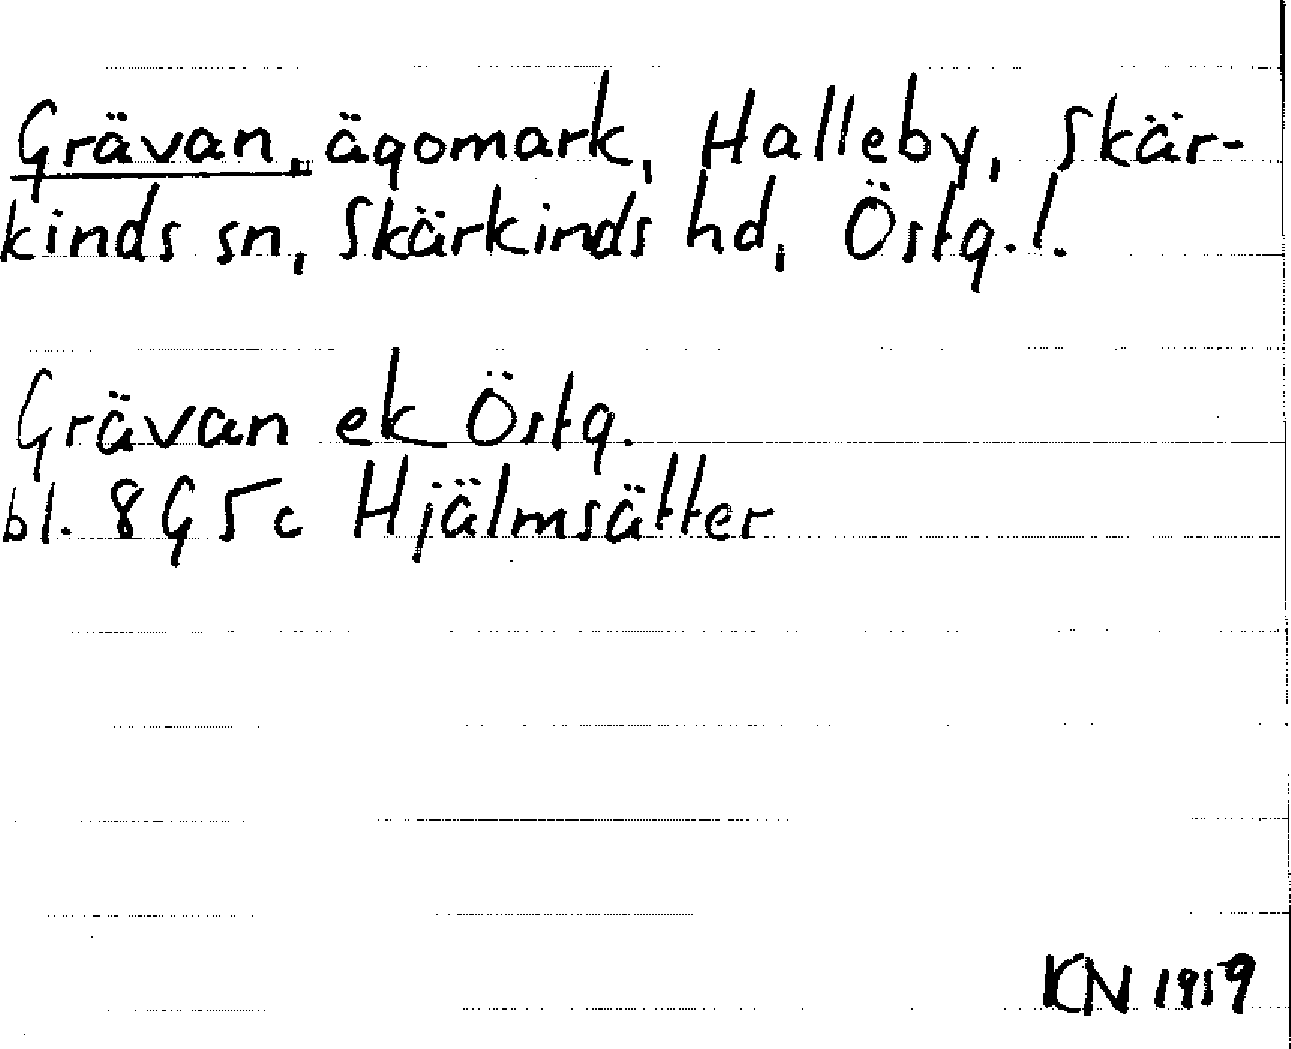 Grävan, ägomark, Halleby, Skär-
kinds sn, Skärkinds hd, Östg.l.
Grävan ek Östg.
bl. 8G5c Hjälmsätter
KN 1959